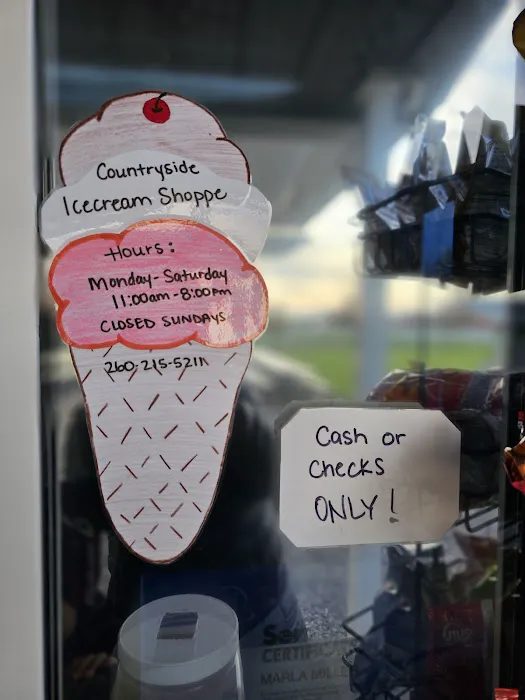 Countryside
Icecream Shoppe
Hours:
Monday-Saturday
11:00am-8:00pm
CLOSED SUNDAYS
260-215-5211
Cash or
Checks
ONLY!
MARLA